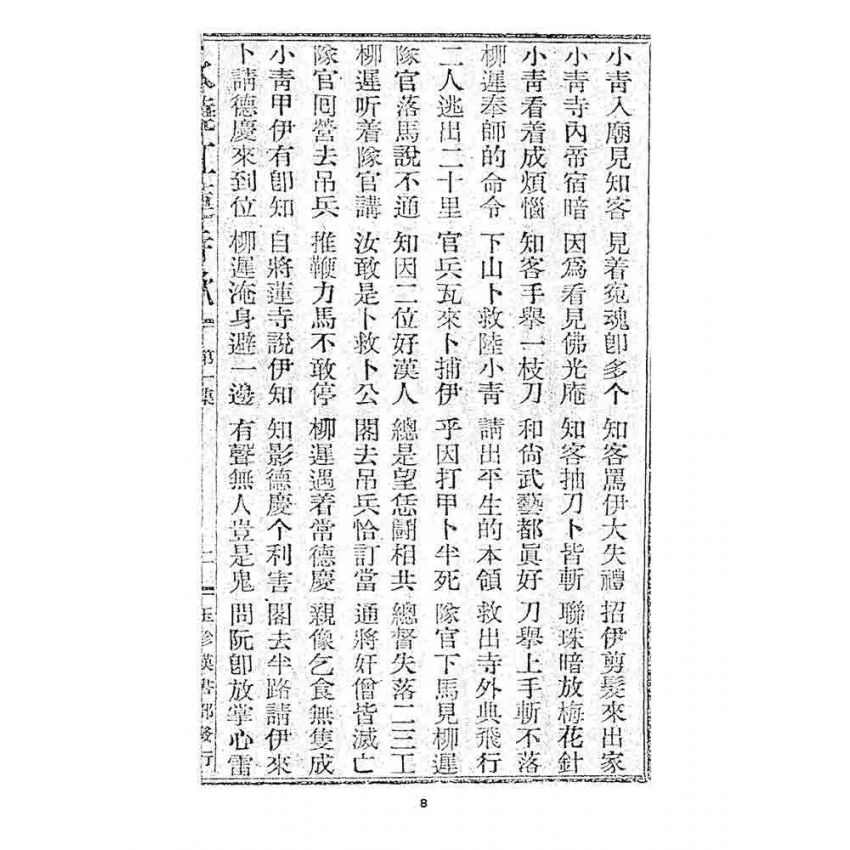 小靑入廟見知客 見着寃魂卽多个 知客罵伊大失禮 招伊剪髮來出家
小靑寺內帝宿暗 因爲看見佛光庵 知客抽刀卜皆斬 聯珠暗放梅花針
小靑看着成煩惱 知客手舉一枝刀 和尙武藝都眞好 刀舉上手斬不落
柳遲奉師的命令 下山卜救陸小靑 請出平生的本領 救出寺外典飛行
二人逃出二十里 官兵瓦來卜捕伊 乎因打甲卜半死 隊官下馬見柳遲
隊官落馬說不通 知因二位好漢人 總是望恁鬪相共 總督失落二三工
柳遲听着隊官講 汝敢是卜救卜公 閣去吊兵恰訂當 通將奸僧皆滅亡
隊官囘營去吊兵 推鞭力馬不敢停 柳遲遇着常德慶 親像乞食無隻成
小靑甲伊有卽知 自將蓮寺說伊知 知影德慶个利害 閣去半路請伊來
卜請德慶來到位 柳遲淹身避一邊 有聲無人豈是鬼 問阮卽放掌心雷
第一集
玉珍漢書部發行
8